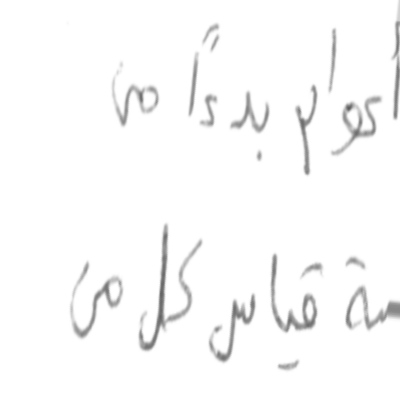 أعوام بدءاً من
قياس كل من